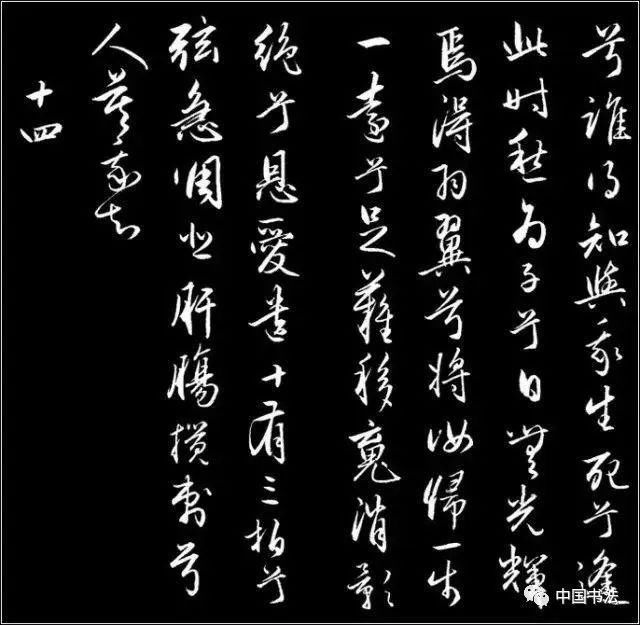 兮誰得知與我生死兮逢
此時愁為子兮日無光輝
焉得羽翼兮將汝歸一步
一遠兮足難移魂消影
絶兮恩愛遺十有三拍兮
弦急調悲肝腸攪刺兮
人莫我知
十四
中国书法